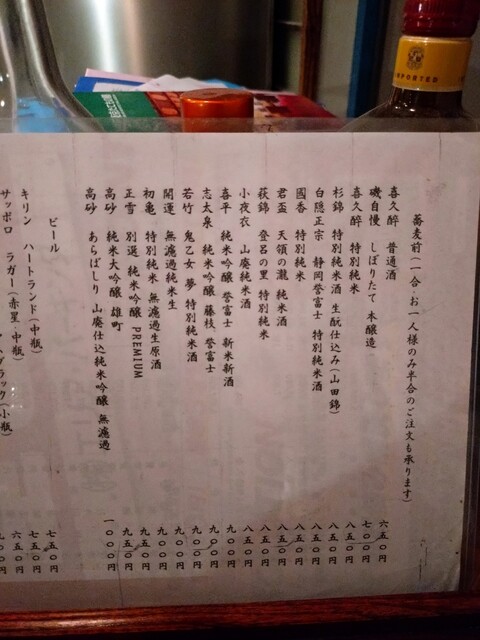 蕎麦前(一合・お一人様のみ半合のご注文も承ります)
喜久酔 普通酒 六五〇円
磯自慢 しぼりたて 本醸造 七〇〇円
喜久酔 特別純米 八五〇円
杉錦 特別純米酒 生酛仕込み(山田錦) 八五〇円
白隠正宗 特別純米酒 静岡誉富士 特別純米酒 八五〇円
國香 特別純米 八五〇円
君盃 天領の瀧 純米酒 八五〇円
萩錦 登呂の里 特別純米 八五〇円
小夜衣 山廃純米酒 八五〇円
喜平 純米吟醸 誉富士 新米新酒 九〇〇円
志太泉 純米吟醸 藤枝 誉富士 九〇〇円
若竹 鬼乙女 夢 特別純米酒 九〇〇円
開運 無濾過純米生 九〇〇円
初亀 特別純米 無濾過生原酒 九〇〇円
正雪 別選 純米吟醸 PREMIUM 九五〇円
高砂 純米大吟醸 雄町 九五〇円
高砂 あらばしり 山廃仕込純米吟醸 無濾過 一〇〇〇円
ビール
キリン ハートランド(中瓶) 七五〇円
サッポロ ラガー(赤星・中瓶) 七五〇円
ブラック(小瓶) 六五〇円
IMPORTED